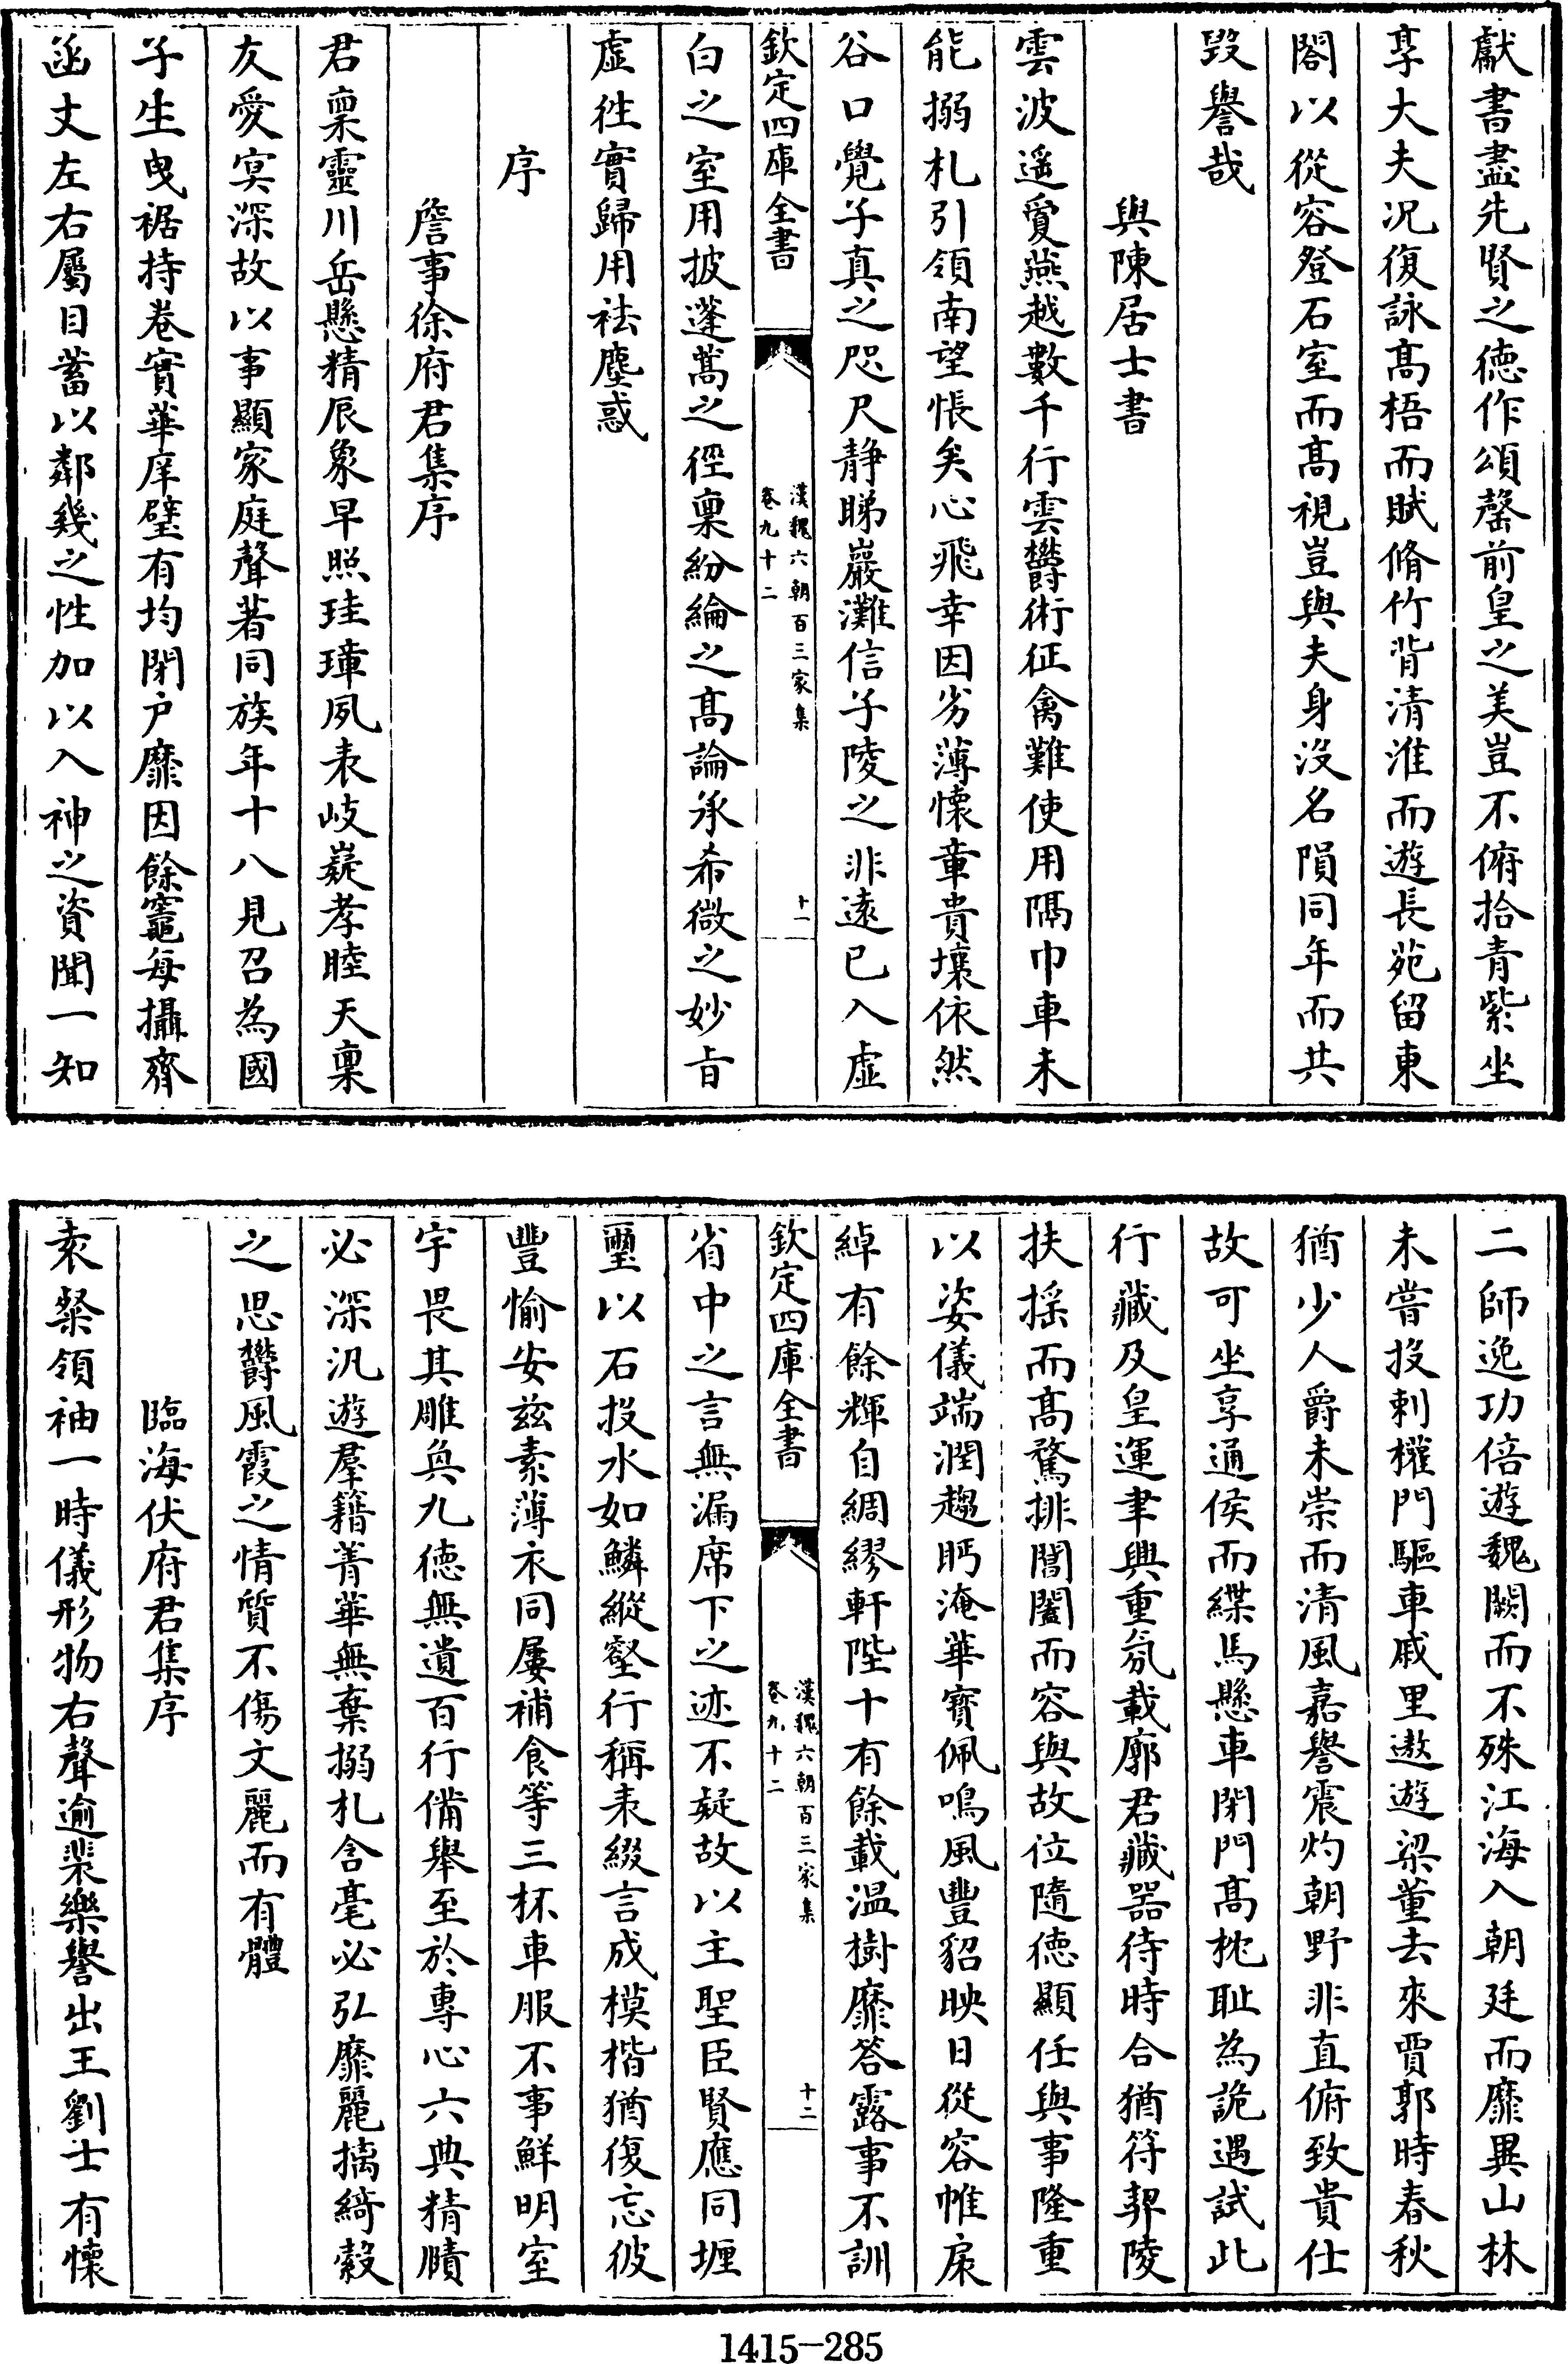 獻書盡先賢之徳作頌罄前皇之美豈不俯拾青紫坐
享大夫况復詠髙梧而賦脩竹背清淮而遊長苑留東
閣以從容登石室而髙視豈與夫身沒名隕同年而共
毀譽哉
與陳居士書
雲波遥夐燕越數千行雲欝術征禽難使用隔巾車未
能搦札引領南望悵矣心飛幸因劣薄懐章貴壤依然
谷口覺子真之咫尺静睇巖灘信子陵之非逺已入虚
欽定四庫全書
漢魏六朝百三家集
卷九十二
十一
白之室用披蓬蒿之徑稟紛綸之髙論承希微之妙㫖
虚徃實歸用袪塵惑
序
詹事徐府君集序
君稟靈川岳懸精辰象早照珪璋夙表岐嶷孝睦天稟
友愛㝠深故以事顯家庭聲著同族年十八見召為國
子生曳裾持卷實華庠壁有均閉户靡因餘竈每攝齊
函丈左右屬目蓄以鄰幾之性加以入神之資聞一知
二師逸功倍遊魏闕而不殊江海入朝廷而靡異山林
未嘗投刺權門驅車戚里遨遊梁董去來賈郭時春秋
猶少人爵未崇而清風嘉譽震灼朝野非直俯致貴仕
故可坐享通侯而緤馬懸車閉門髙枕耻為詭遇試此
行藏及皇運聿興重氛載廓君藏器待時合猶符契陵
扶揺而髙騖排閶闔而容與故位隨徳顯任與事隆重
以姿儀端潤趨眄淹華寳佩鳴風豐貂映日從容帷扆
綽有餘輝自綢繆軒陛十有餘載温樹靡答露事不訓
欽定四庫全書
漢魏六朝百三家集
卷九十二
十二
省中之言無漏席下之迹不疑故以主聖臣賢應同堙
璽以石投水如鱗縱壑行稱表綴言成模楷猶復忘彼
豐愉安兹素薄衣同屢補食等三杯車服不事鮮明室
宇畏其雕奐九徳無遺百行備舉至於專心六典精賾
必深汎遊羣籍菁華無棄搦札含毫必弘靡麗摛綺縠
之思欝風霞之情質不傷文麗而有體
臨海伏府君集序
袁粲領袖一時儀形物右聲逾裴樂譽出王劉士有懐
1415-285